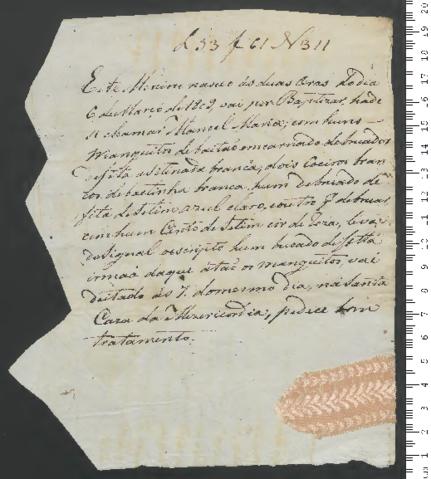 L 53 f 61 N 311
Este Menino nasceu ás duas oras do dia
6 de Março de 1809, vai por Baptizar, hade
se chamar Manoel Maria; com huns
manguitos de baetão encarnado debruados
de fita asetinada branca, dois Coeiros bran
cos de baetinha branca, hum debruado de
fita de Setim azul claro, outro
com hum Cinto de Setim cor de Roza, leva
de signal o escripto hum bucado de fitta
irmaã da que ata os manguitos, vai
deitado ás 7. do mesmo dia, na Santa
Caza da Mizericordia, pedice bom
tratamento.